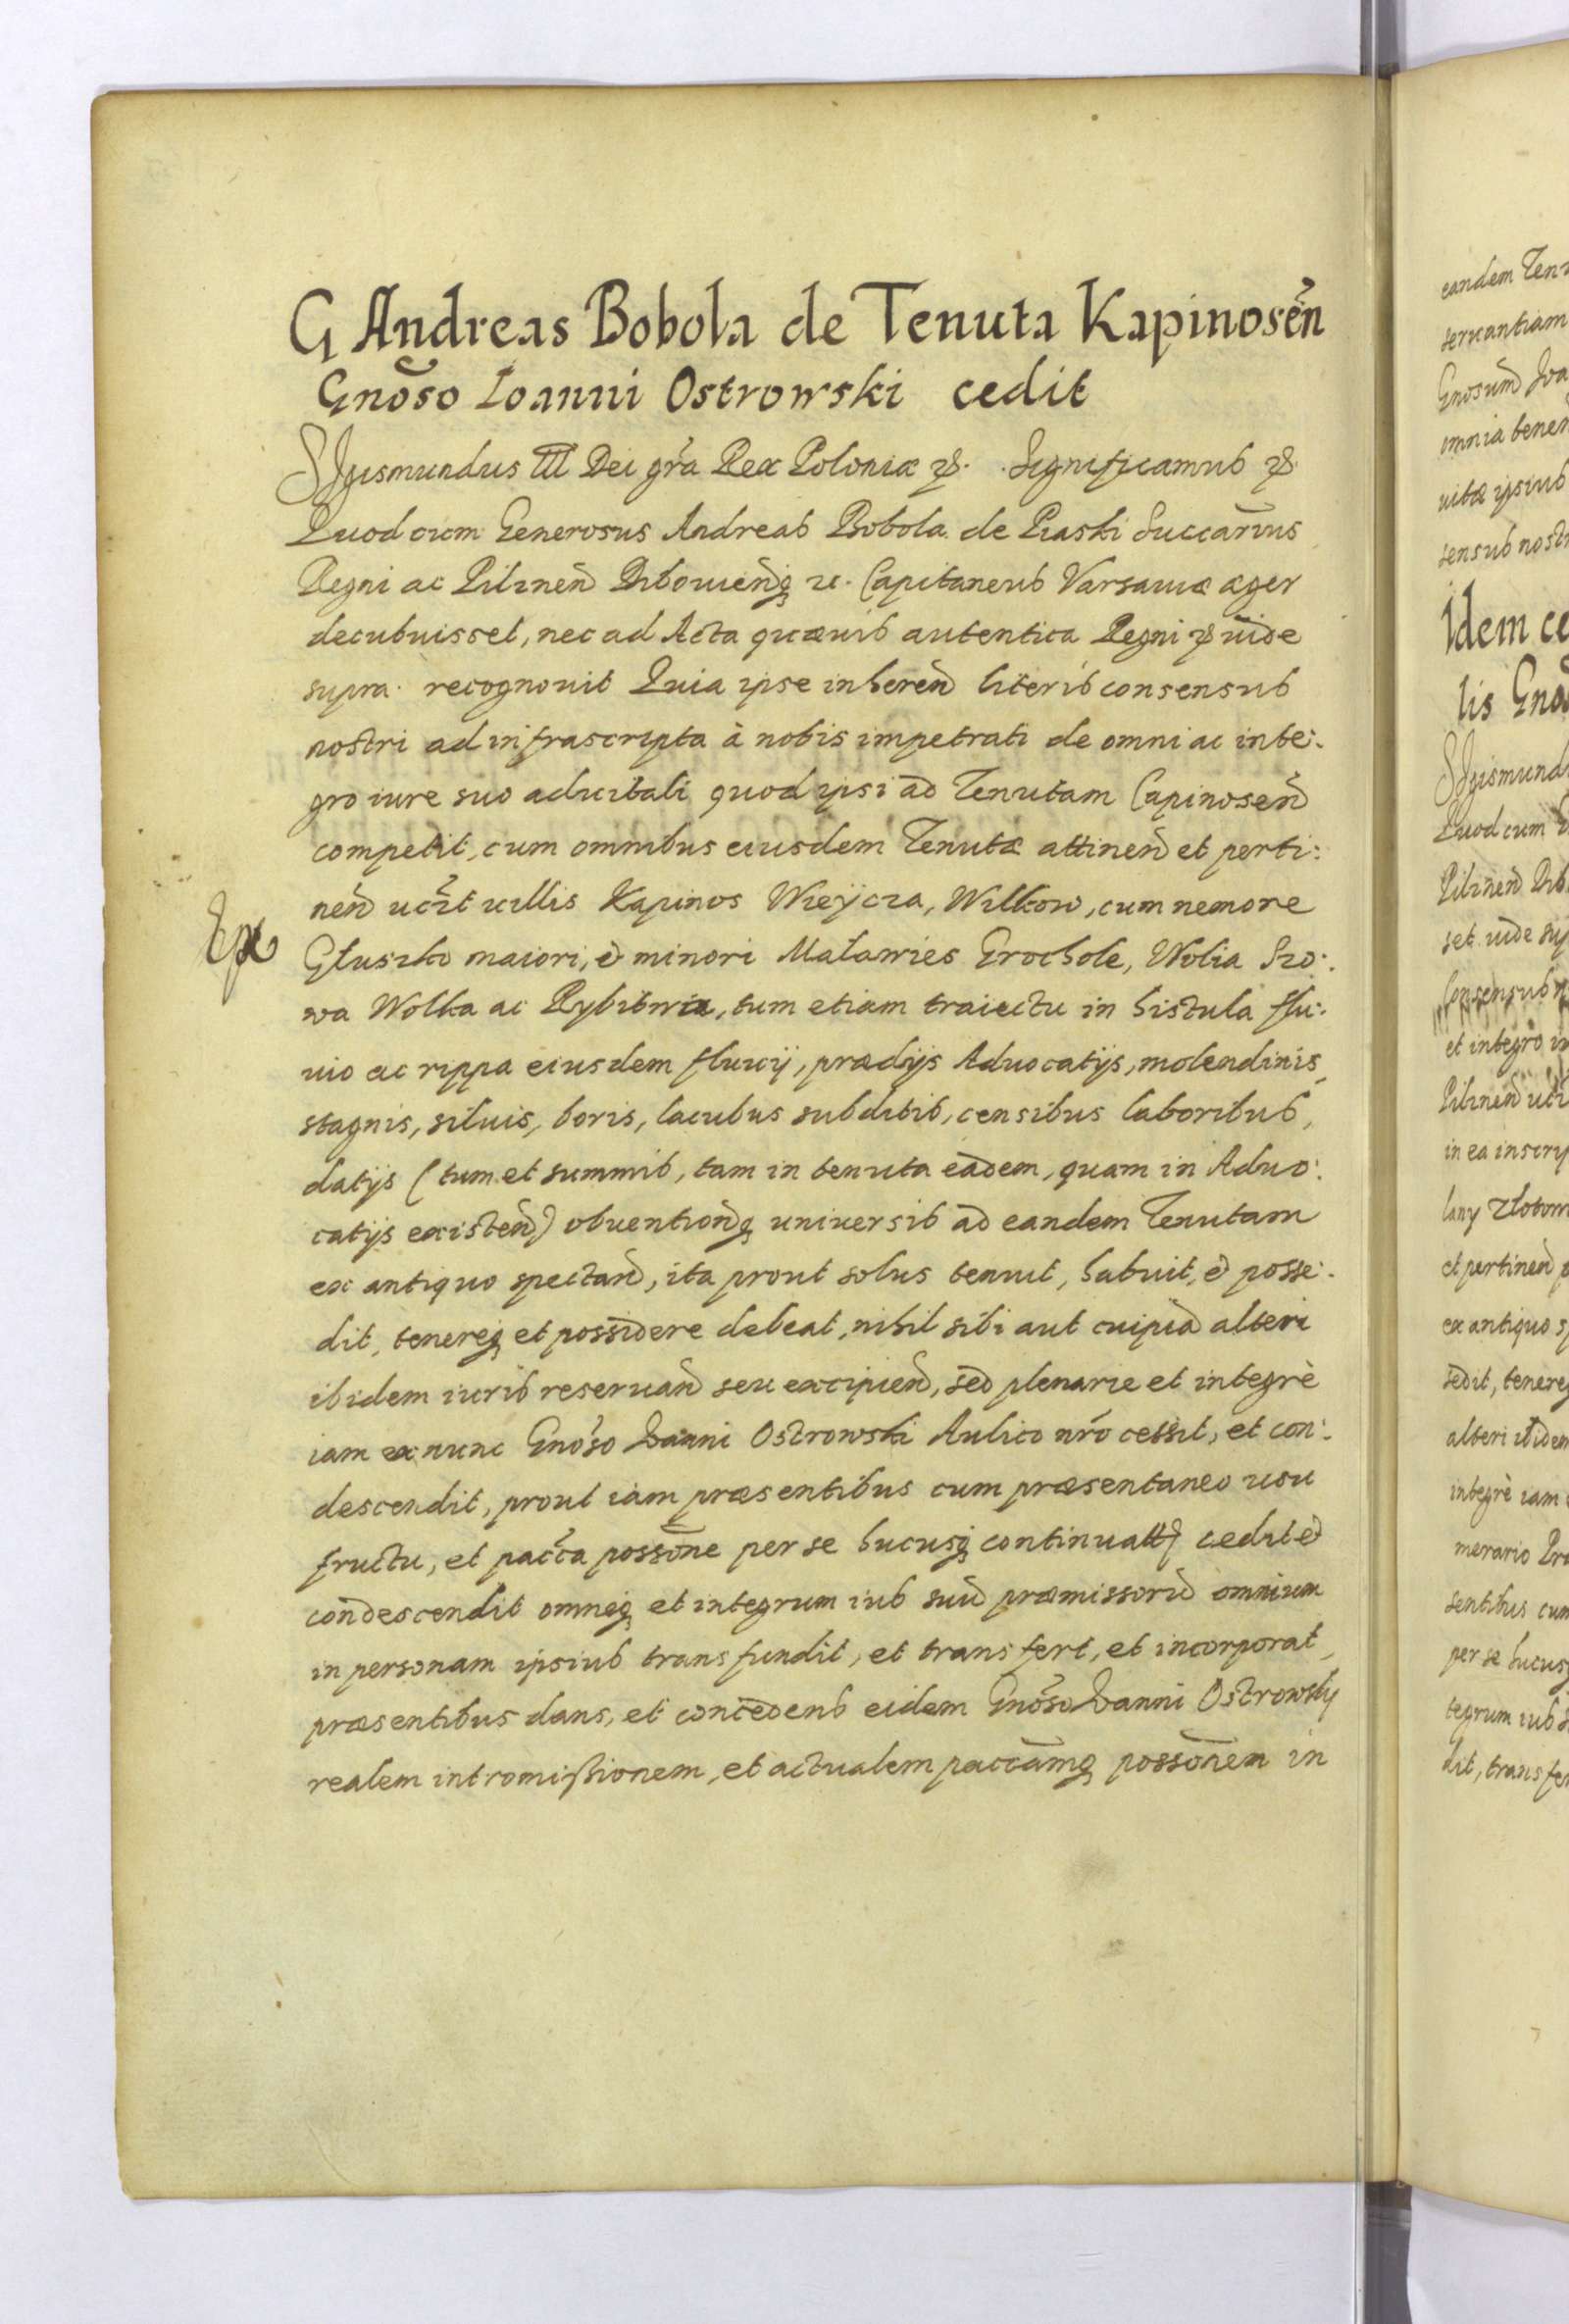 G Andreas Bobola de Tenuta Kapinoseñ
Gnõso Ioanni Ostrowski cedit
Sigismundus III Dei grã Rex Poloniæ &. Significamus &
Quod cum Generosus Andreas Bobola de Piaski Succãrius
Regni ac Pilzneñ Dibouieñq́ ec. Capitaneus Varsauiæ æger
decubuisset, nec ad Acta quæuis autentica Regni & uide
supra recognouit Quia ipse inhereñ literis consensus
nostri ad infrascripta à nobis impetrati de omni ac inte:
gro iure suo aduitali quod ipsi ad Tenutam Capinoseñ
competit, cum omnibus eiusdem Tenutæ attineñ et perti:
neñ ucz̃t uillis Kapinos Wieÿcza, Wilkow, cum nemore
Głuszko maiori, et minori Maławies Grochole, Wolia Szo:
wa Wolka ac Rybitwia, tum etiam traiectu in Histula flu:
uio ac rippa eiusdem fluuij, prædijs Aduocatijs, molendinis,
stagnis, siluis, boris, lacubus subditis, censibus laboribus,
datijs (tum et summis, tam in tenuta eadem, quam in Aduo:
catijs existeñ) obuentionq́ uniuersis ad eandem Tenutam
ex antiquo spectañ, ita prout solus tenuit, habuit, et posse:
dit, tenereq́ et possidere debeat, nihil sibi aut cuipiã alteri
ibidem iuris reseruañ seu excipieñ, sed plenarie et integrè
iam ex nunc Gnõso Ioanni Ostrowski Aulico nrõ cessit, et con:
descendit, prout iam præsentibus cum præsentaneo usu
fructu, et pacc̃a possõne per se hucusq́ continuatta cedit et
condescendit omneq́ et integrum ius suũ præmissorũ omnium
in personam ipsius transfundit, et transfert, et incorporat,
præsentibus dans, et concedens eidem Gnõso Ioanni Ostrowsky
realem intromissionem, et actualem paccãmq́ possõnem in
eandem Ten
seruantiam
Gnosum Ioa
omnia tenen
uitæ ipsius
sensus nostr
Idem ce
lis Gno
Sigismund
Quod cum
Pilzneñ Dib
set uide su
Consensus n
et integro i
Pilzneñ uc
in ea inscrip
lany Złotom
et pertineñ
ex antiquo s
sedit, tenereq
alteri ibidem
integrè iam
merario Pr
sentibus cum
per se hucus
tegrum ius s
dit, transfer